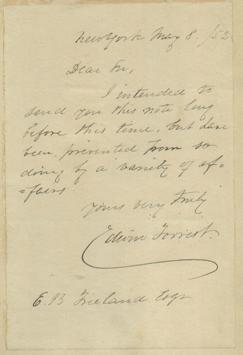 New York May 8. /53
Dear Sir,
I intended to
send you this note long
before this time, but have
been prevented from so
doing by a variety of af-
-fairs.
Yours very truly
Edwin Forrest.
E. B Freeland Esqr